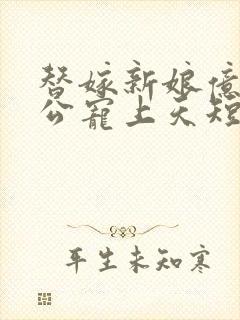 替嫁新娘億
公寵上天短
平生未知寒